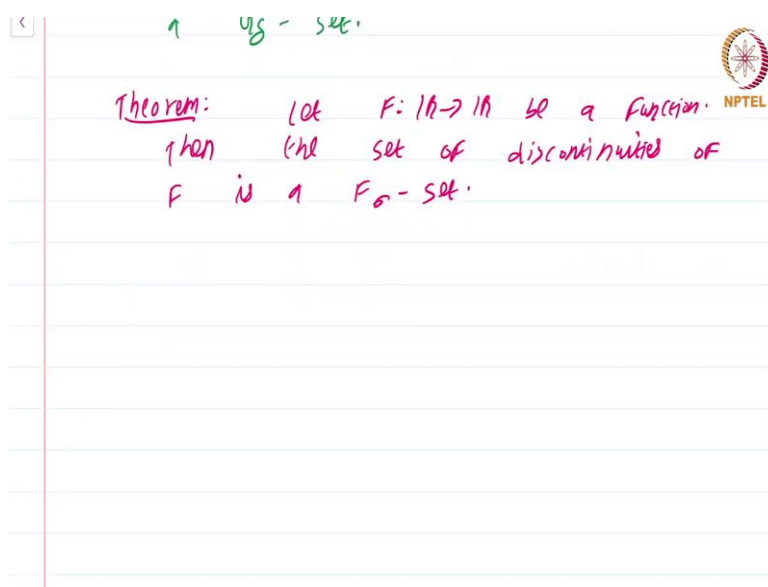 a Gδ - set.
NPTEL
Theorem: Let F: ℝ→ℝ be a function.
Then the set of discontinuities of
F is a Fσ - set.